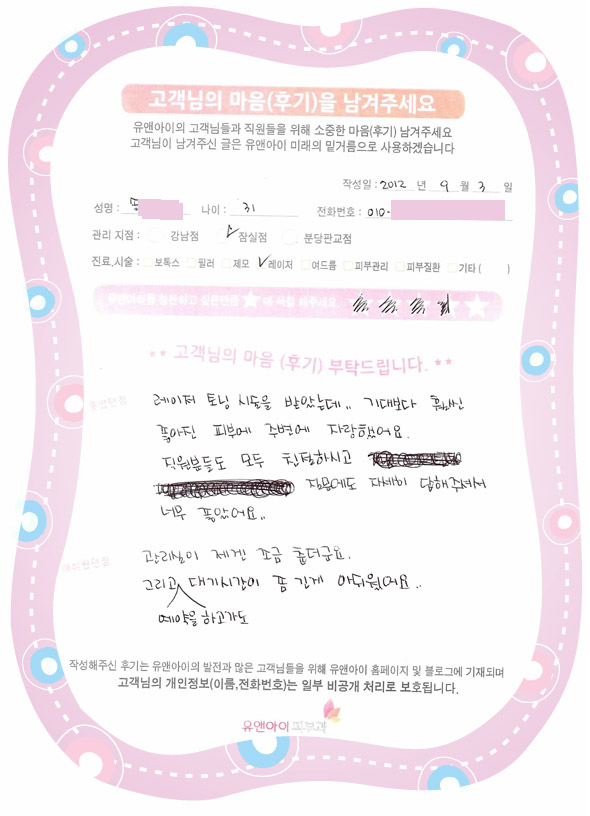 고객님의 마음(후기)을 남겨주세요
유앤아이의 고객님들과 직원들을 위해 소중한 마음(후기) 남겨주세요
고객님이 남겨주신 글은 유앤아이 미래의 밑거름으로 사용하겠습니다
작성일 : 2012 년 9 월 3 일
성명 : 나이 : 31 전화번호 : 010-
관리 지점 : 강남점 잠실점 분당판교점
진료,시술 : 보톡스 필러 제모 레이저 여드름 피부관리 피부질환 기타 ( )
유앤아이를 칭찬하고 싶은만큼 ★에 색칠 해주세요
** 고객님의 마음 (후기) 부탁드립니다. **
좋았던점
레이저 토닝 시술을 받았는데.. 기대보다 훨씬
좋아진 피부에 주변에 자랑했어요.
직원분들도 모두 친절하시고
질문에도 자세히 답해주셔서
너무 좋았어요..
아쉬웠던점
관리실이 제겐 조금 춥더군요.
그리고 대기시간이 좀 긴게 아쉬웠어요..
예약을 하고가도
작성해주신 후기는 유앤아이의 발전과 많은 고객님들을 위해 유앤아이 홈페이지 및 블로그에 기재되며
고객님의 개인정보(이름,전화번호)는 일부 비공개 처리로 보호됩니다.
유앤아이 피부과